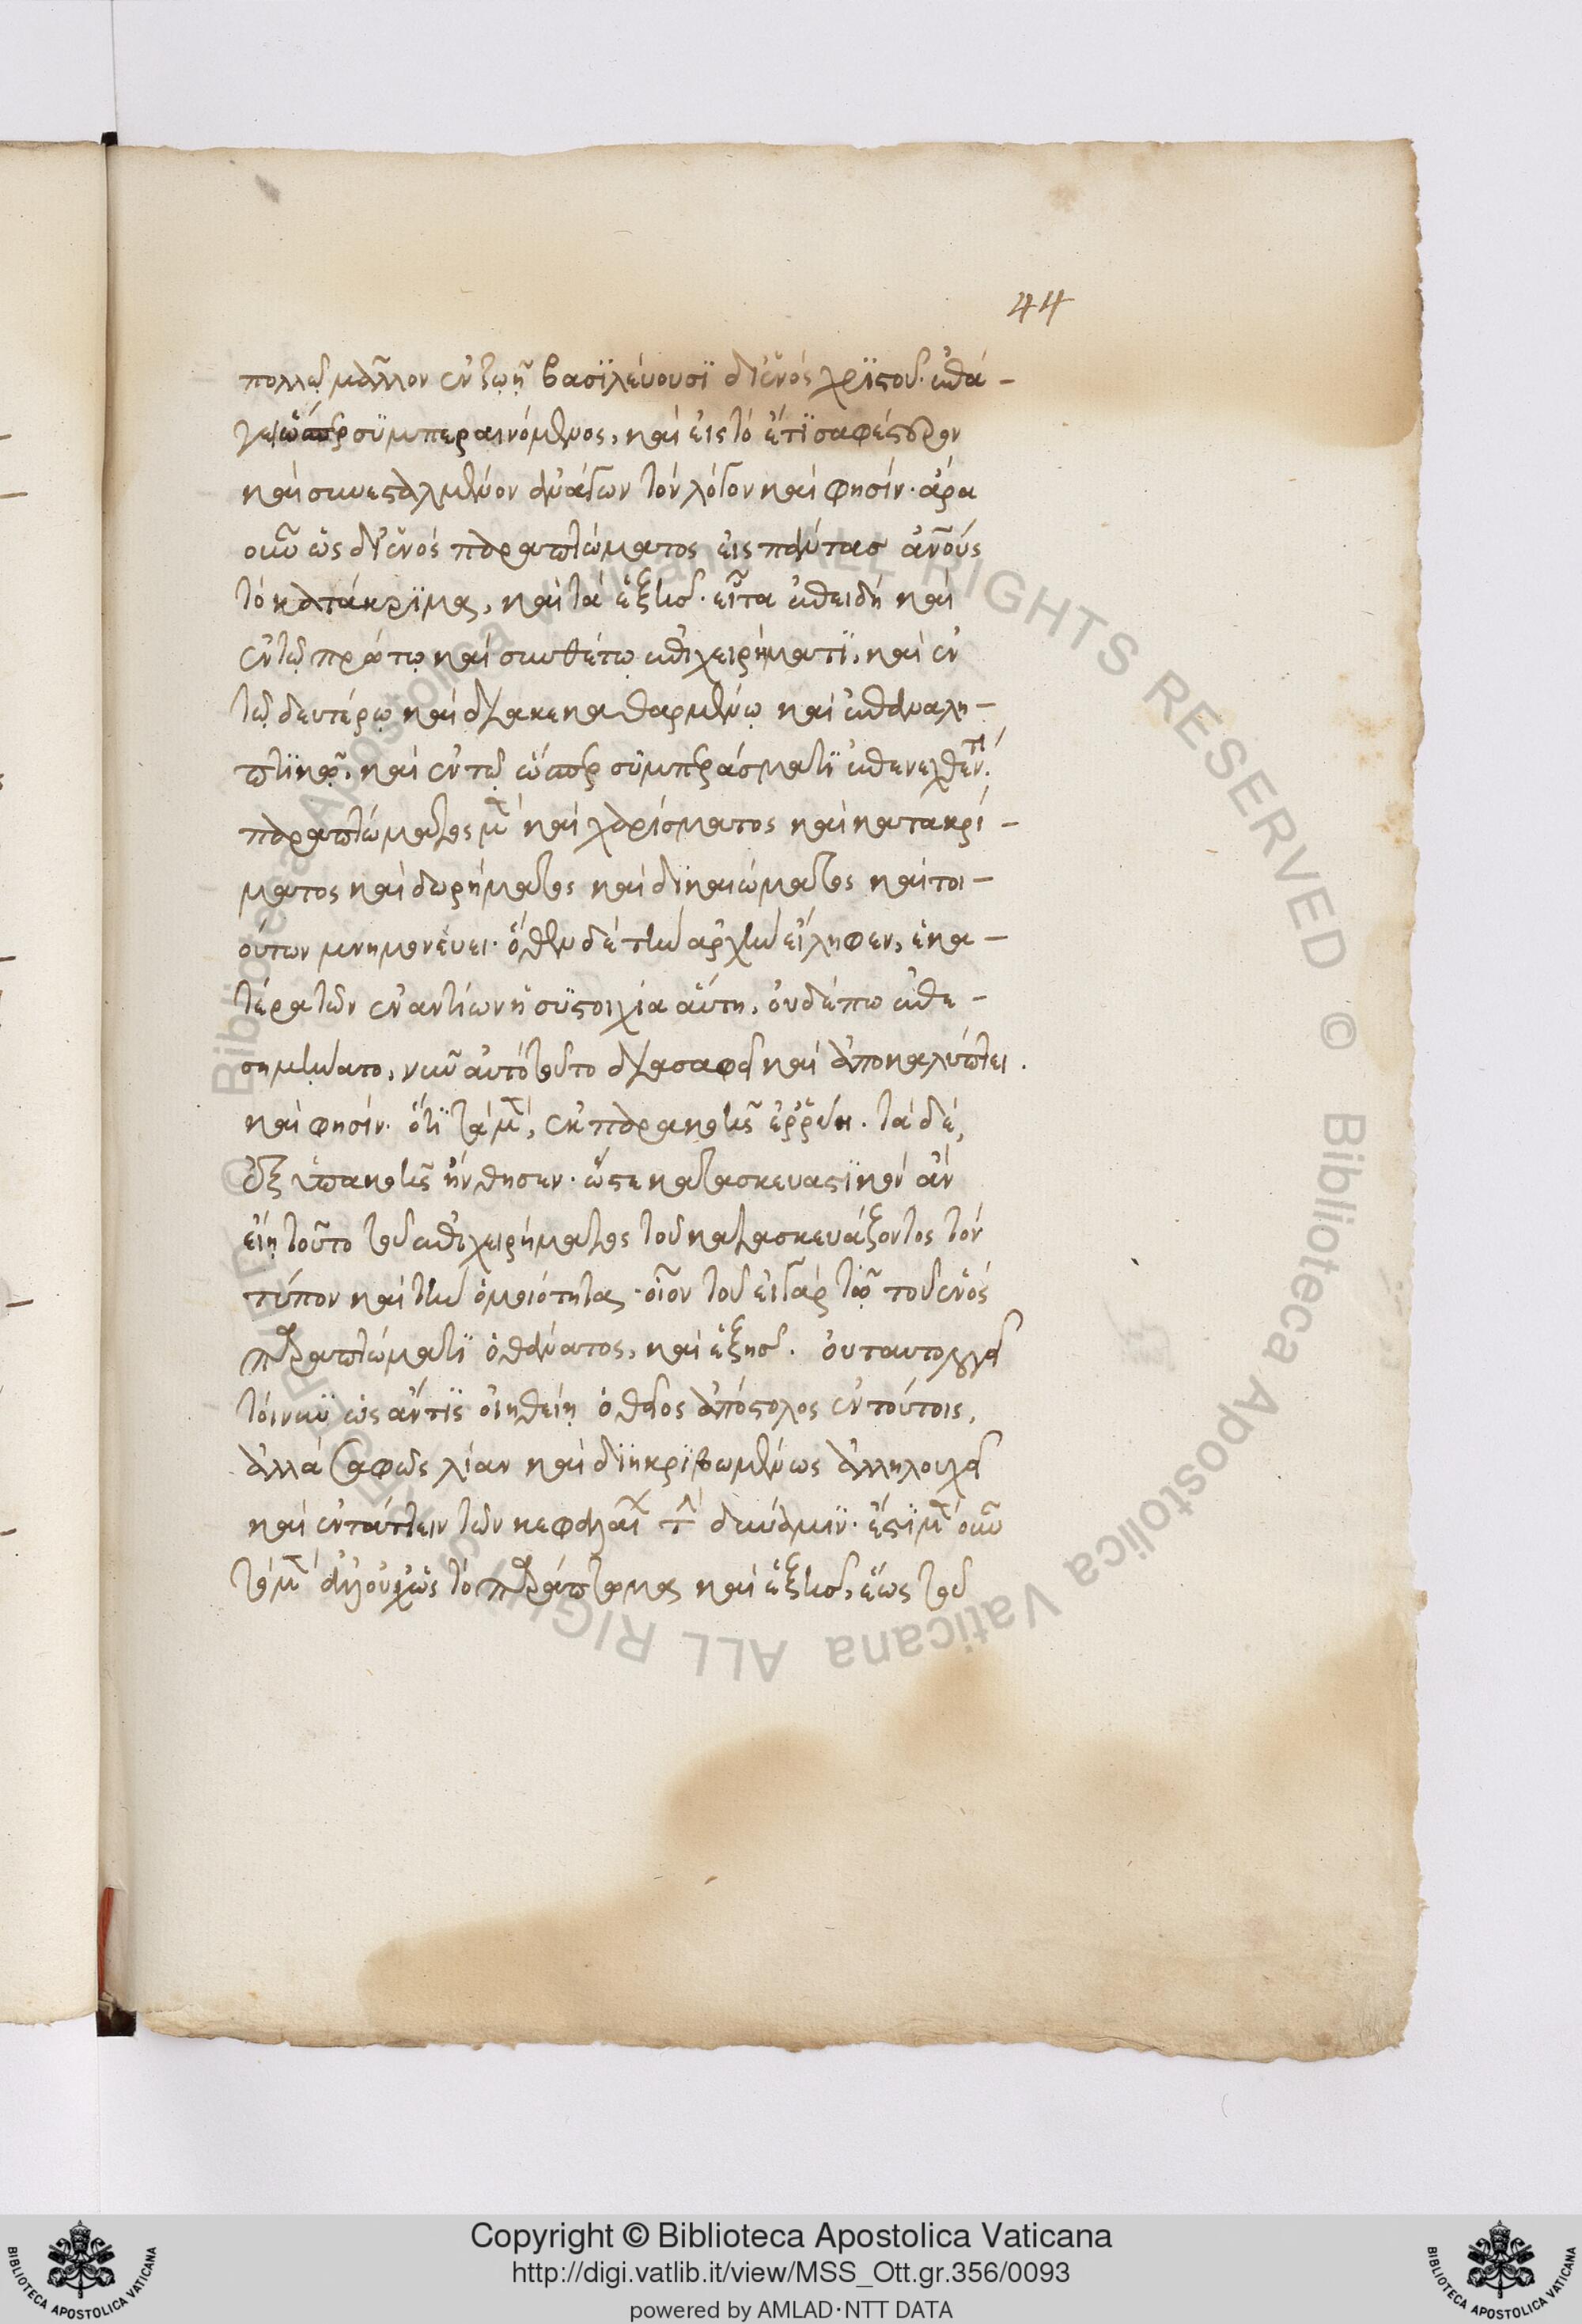 44
πολλῷ μᾶλλον ἐν ζωῇ βασϊλεύουσϊ δι' ἑνὸς χρϊστοῦ· ἐπά-
γει ὥσπερ σϋμπεραινόμενος, καὶ εἰς τὸ ἔτϊ σαφέστερον
καὶ συνεσταλμένον ἀνάγων τὸν λόγον καὶ φησίν· ἄρα
οὖν ὡς δι' ἑνὸς παραπτώματος εἰς πάντασ ἀνούς
τὸ κατάκρϊμα, καὶ τὰ ἑξῆσ· εἶτα ἐπειδὴ καὶ
ἐν τῷ πρώτῳ καὶ συνθέτῳ ἐπιχειρήματϊ, καὶ ἐν
τῷ δευτέρῳ καὶ διακεκαθαρμένῳ καὶ ἐπαναλη-
πτϊκῷ, καὶ ἐν τῷ ὥσπερ σϋμπεράσματϊ ἐπενεχθέντι
παραπτώματος μὲν καὶ χαρίσματος καὶ κατακρί-
ματος καὶ δωρήματος καὶ δϊκαιώματος καὶ τοι-
ούτων μνημονεύει· ὅθεν δὲ τὴν ἀρχὴν εἴληφεν, ἑκα-
τέρα τῶν ἐναντίων ἡ σϋστοιχία αὕτη, οὐδέπω ἐπε-
σημήνατο, νῦν αὐτὸ τοῦτο διασαφεῖ καὶ ἀποκαλύπτει.
καὶ φησίν· ὅτϊ τὰ μὲν, ἐκ παρακοῆς ἐρρύη. τὰ δὲ,
ἐξ ὑπακοῆς ἤνθησεν· ὥστε κατασκευαστϊκὸν ἂν
εἴη τοῦτο τοῦ ἐπιχειρήματος τοῦ κατασκευάζοντος τὸν
τύπον καὶ τὴν ὁμοιότητα· οἷον τοῦ εἰ γὰρ τῷ τοῦ ἑνὸς
παραπτώματϊ ὁ θάνατος, καὶ ἑξῆσ. οὐ ταυτολογεῖ
τοίνυν ὡς ἄν τϊς οἰηθείη ὁ θεῖος ἀπόστολος ἐν τούτοις,
ἀλλὰ σαφῶς λίαν καὶ δϊηκρϊβωμένως ἀλληλουχεῖ
καὶ ἐντάττειν τῶν κεφαλαί τὴν δύναμϊν· ἔστϊ μὲν οὖν
τὸ μὲν ἀλλ' οὐχ ὡς τὸ παράπτωμα καὶ ἑξῆσ, ἕως τοῦ
Copyright © Biblioteca Apostolica Vaticana
http://digi.vatlib.it/view/MSS_Ott.gr.356/0093
powered by AMLAD·NTT DATA